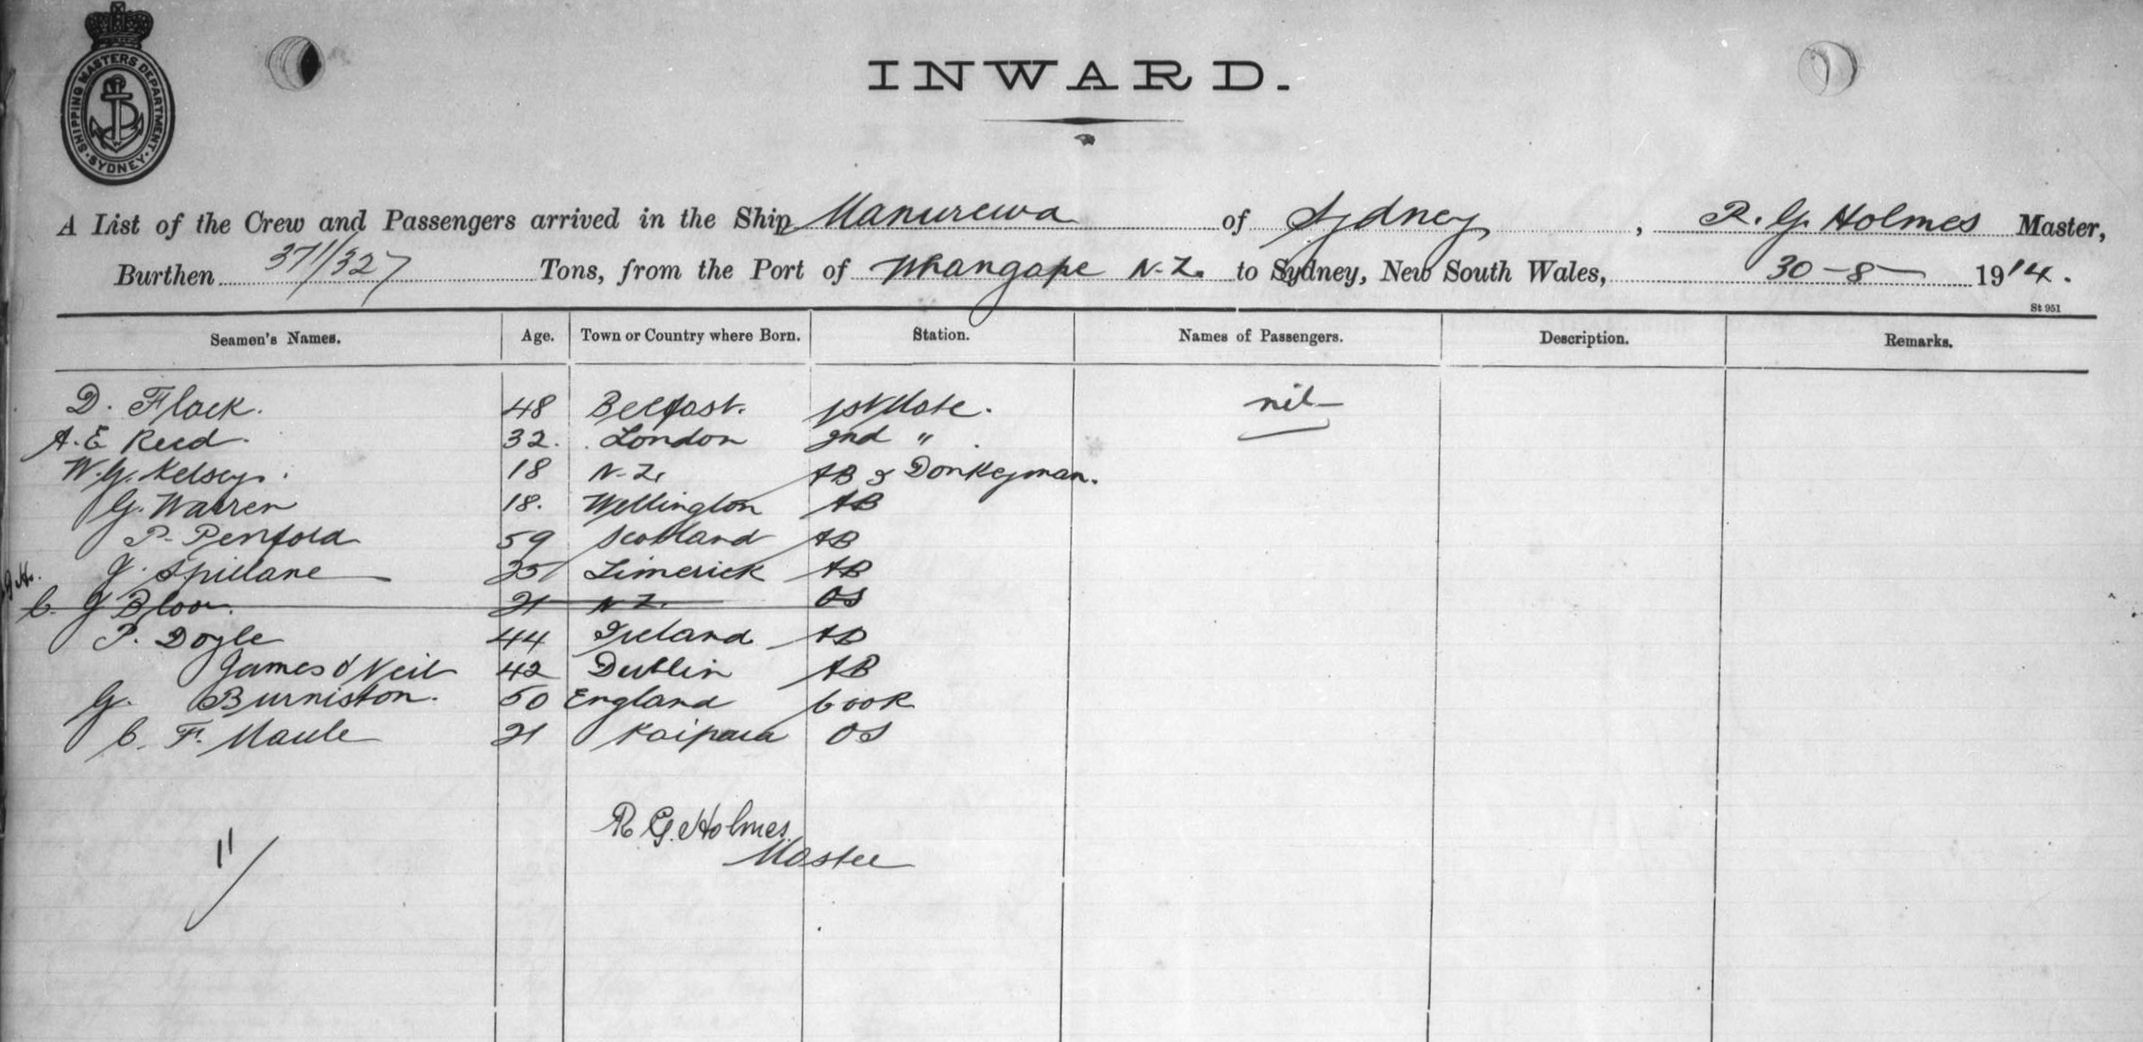 SHIPPING MASTERS DEPARTMENT · SYDNEY ·
INWARD.
A List of the Crew and Passengers arrived in the Ship Manurewa of Sydney, R. G. Holmes Master,
Burthen 371/327 Tons, from the Port of Whangape N.Z. to Sydney, New South Wales, 30-8- 1914.
St 951
Seamen's Names. Age. Town or Country where Born. Station. Names of Passengers. Description. Remarks.
D. Flack. 48 Belfast. 1st Mate. nil
A. E Reed. 32. London 2nd " .
W. G. Kelsey. 18 N.Z. AB & Donkeyman.
G. Warren 18. Wellington AB
P. Penfold 59 Scotland AB
J. Spillane 25 Limerick AB
C. J Bloor. 21 N.Z. OS
P. Doyle 44 Ireland AB
James O'Neil 42 Dublin AB
G. Burniston. 50 England Cook
C. F. Maule 21 Kaipara OS
R G. Holmes.
Master
11/